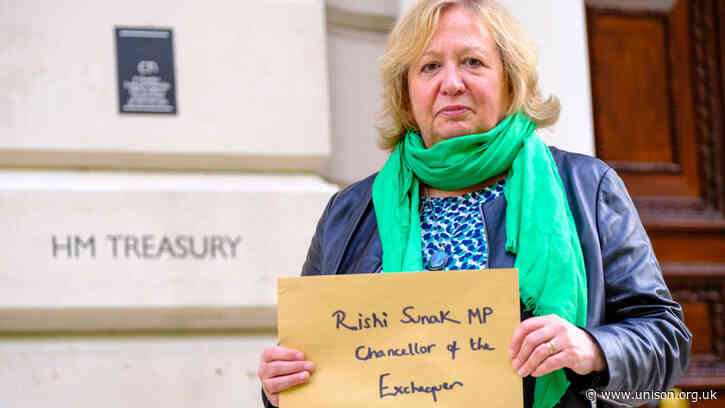 HM TREASURY
Rishi Sunak MP
Chancellor of the
Exchequer
www.unison.org.uk